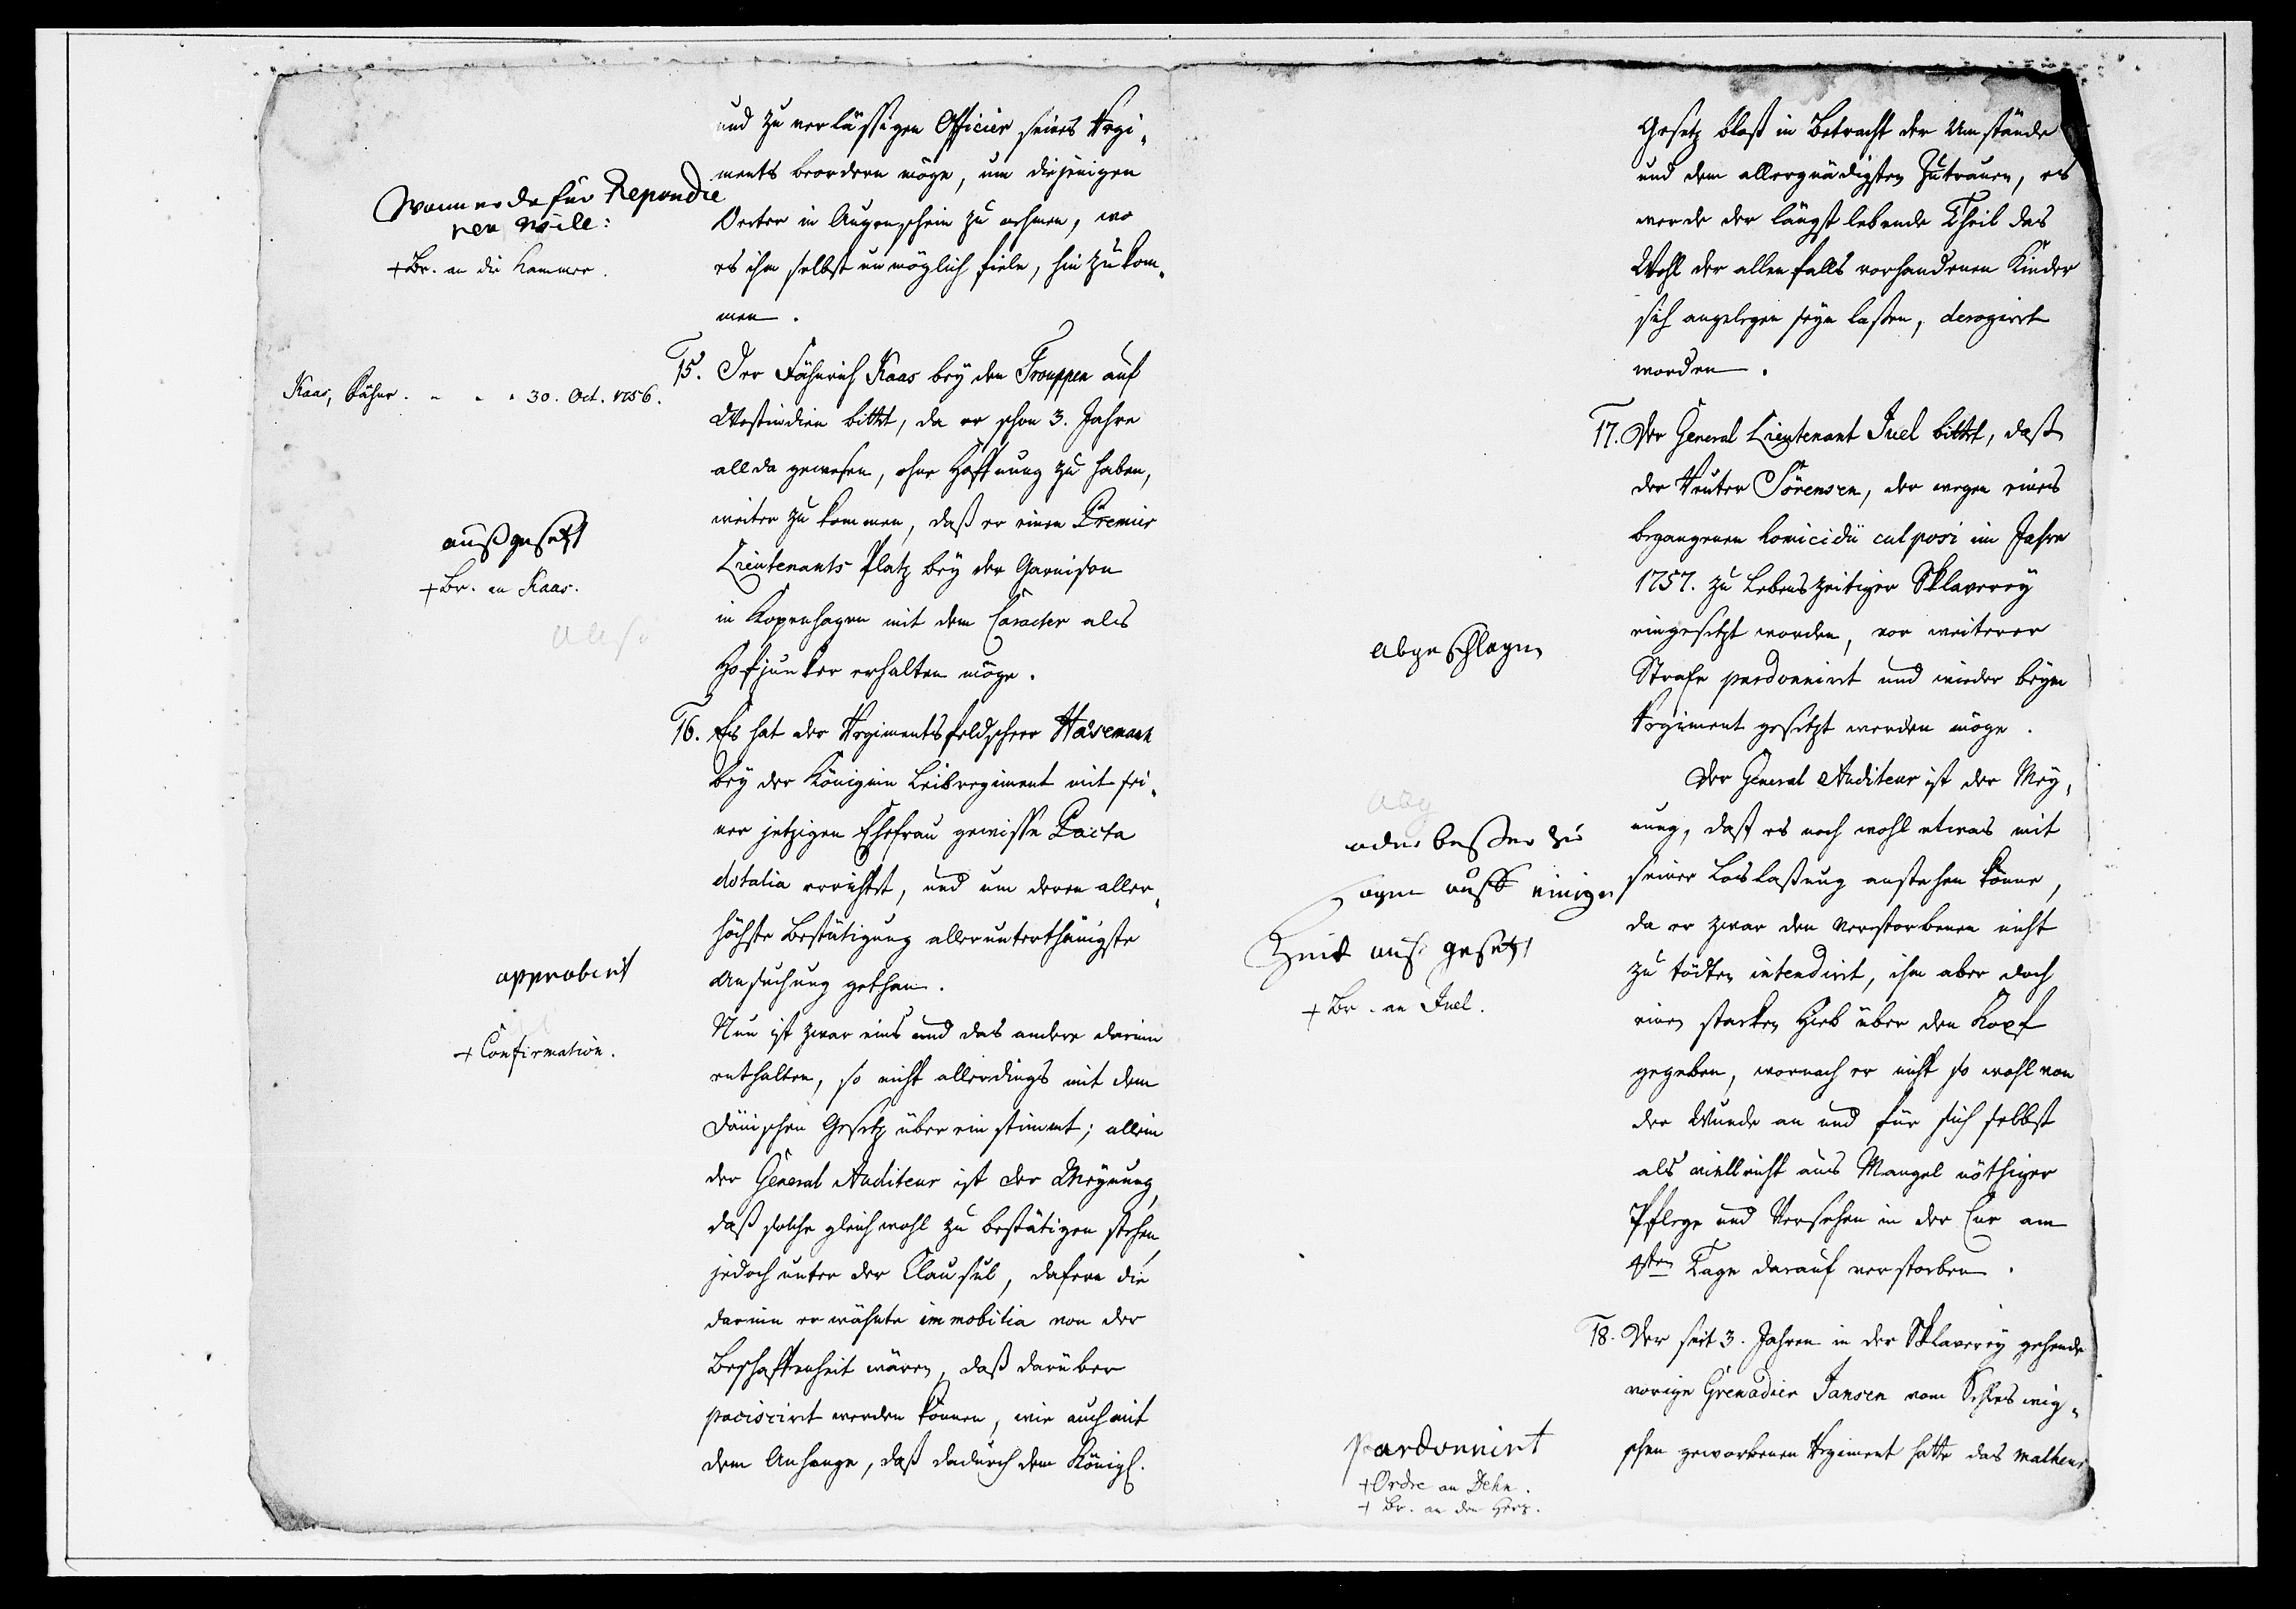 und zu verläßigen Officier seines Regi¬
ments beordern möge, um diejenigen
Wann er dafür Repondie
ren wile:
Oerter in Augenschein zu nehmen, wo
+ Br. an die Kammer.
es ihm selbst unmöglich fiele, hin zu kom¬
men.
15. Der Fähnrich Kaas bey den Trouppen auf
Kaas, Fähnr. - - - 30. Oct. 1756.
Westindien bittet, da er schon 3. Jahre
allda gewesen, ohne Hoffnung zu haben,
weiter zu kommen, daß er einen Premier
außgesetzt
Lieutenants Platz bey der Garnison
+ Br. an Kaas.
in Kopenhagen mit dem Caracter als
Hofjunker erhalten möge.
16. Es hat der Regimentsfeldscheer Hasemann
bey der Königinn Leibregiment mit sei¬
ner jetzigen Ehefrau gewisse Pacta
dotalia errichtet, und um deren aller¬
höchste Bestätigung allerunterthänigste
approbirt
Ansuchung gethan.
Nun ist zwar eins und das andere darinn
+ Confirmation.
enthalten, so nicht allerdings mit dem
Dänischen Gesetz über ein stimmt; allein
der General Auditeur ist der Meynung,
daß solche gleichwohl zu bestätigen stehen,
jedoch unter der Clausul, dafern die
darinn erwähnte immobilia von der
Beschaffenheit wären, daß darüber
pacisciret werden können, wie auch mit
dem Anhange, daß dadurch dem Königl.
Gesetz bloß in Betracht der Umstände
und dem allergnädigsten Zutrauen, es
werde der längst lebende Theil das
Wohl der allenfalls vorhandenen Kinder
sich angelegen seyn laßen, derogirt
worden.
17. Der General Lieutenant Juel bittet, daß
der Reuter Sörensen, der wegen eines
begangenen homicidii culposi im Jahre
1757. zu Lebenszeitiger Sklaverey
eingesetzt worden, vor weiterer
abgeschlagen
Strafe pardonnirt und wieder beym
Regiment gesetzt werden möge.
Der General Auditeur ist der Mey¬
abg
nung, daß es noch wohl etwas mit
oder beßer zu
seiner Loslaßung anstehen könne,
sagen auff einige
da er zwar den Verstorbenen nicht
Zeit auß gesetzt
zu tödten intendirt, ihm aber doch
+ Br. an Juel.
einen starken Hieb über den Kopf
gegeben, wornach er nicht so wohl von
der Wunde an und für sich selbst
als vielleicht aus Mangel nöthiger
Pflege und Versehen in der Cur am
4ten Tage darauf verstorben.
18. Der seit 3. Jahren in der Sklaverey gehende
vorige Grenadier Jansen vom Schleswig¬
pardonnirt
schen geworbenen Regiment hatte das malheur
+ Ordre an Dehn.
+ Br. an den Herz.